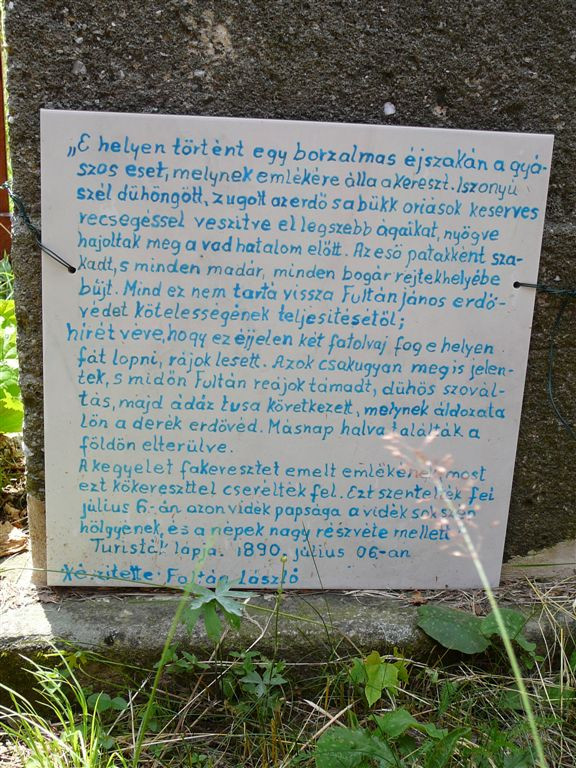 „E helyen történt egy borzalmas éjszakán a gyá-
szos eset, melynek emlékére álla a kereszt. Iszonyú
szél dühöngött, zugott az erdő s a bükk oriások keserves
recsegéssel veszitve el legszebb ágaikat, nyögve
hajoltak meg a vad hatalom előtt. Az eső patakként sza-
kadt, s minden madár, minden bogár rejtekhelyébe
bújt. Mind ez nem tartá vissza Fultán jános erdő-
védet kötelességének teljesitésétől;
hirét véve, hogy ez éjjelen két fatolvaj fog e helyen
fát lopni, rájok lesett. Azok csakugyan meg is jelen-
tek, s midőn Fultán reájok támadt, dühös szovál-
tás, majd ádáz tusa következett, melynek áldozata
lőn a derék erdővéd. Másnap halva találták a
földön elterülve.
A kegyelet fakeresztet emelt emlékének, most
ezt kőkereszttel cserélték fel. Ezt szentelték fel
július 6.-án azon vidék papsága a vidék sok szén
hölgyének, és a népek nagy részvéte mellett
Turisták lapja. 1890. július 06-án
Készitette Foltán László